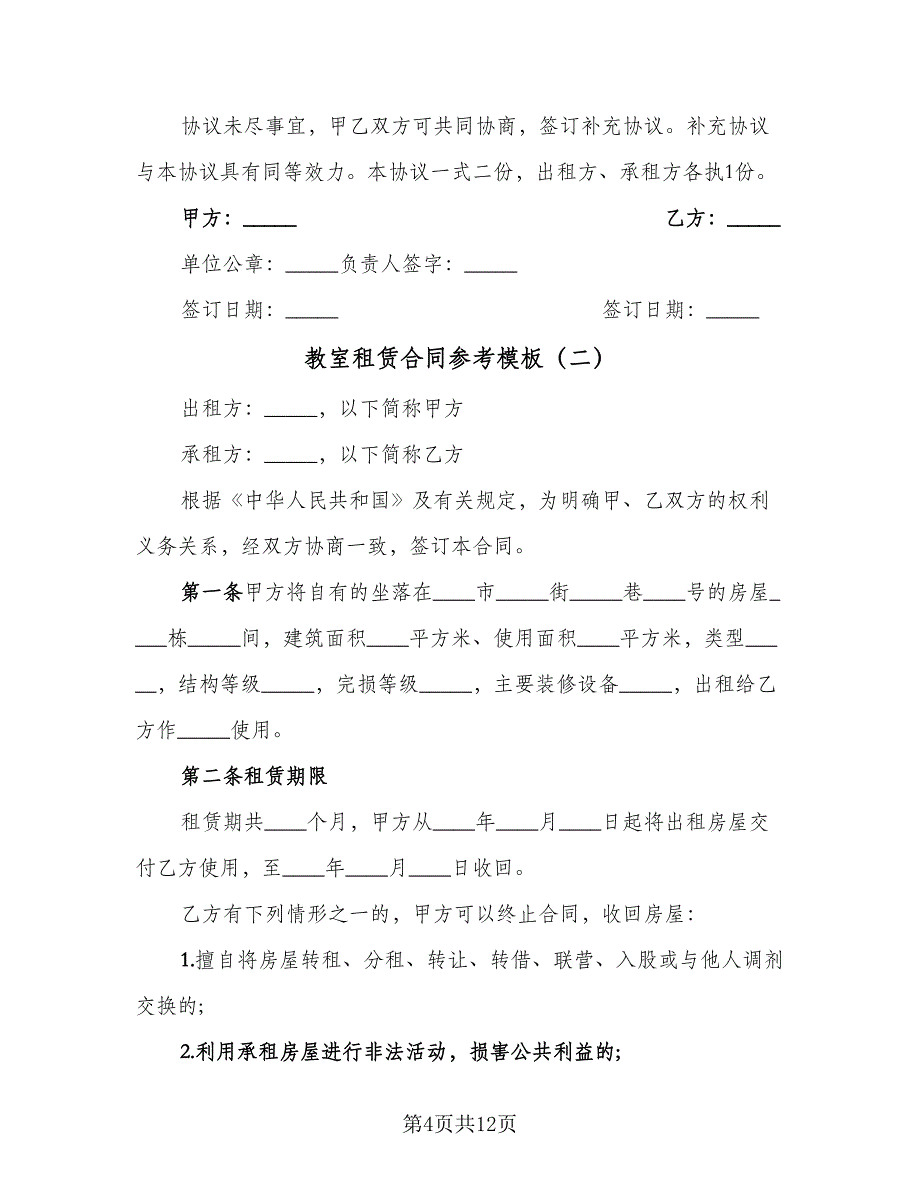 协议未尽事宜，甲乙双方可共同协商，签订补充协议。补充协议
与本协议具有同等效力。本协议一式二份，出租方、承租方各执1份。
甲方：_____ 乙方：_____
单位公章：_____负责人签字：_____
签订日期：_____ 签订日期：_____
教室租赁合同参考模板（二）
出租方：_____，以下简称甲方
承租方：_____，以下简称乙方
根据《中华人民共和国》及有关规定，为明确甲、乙双方的权利
义务关系，经双方协商一致，签订本合同。
第一条甲方将自有的坐落在____市_____街_____巷____号的房屋_
___栋_____间，建筑面积____平方米、使用面积____平方米，类型___
__，结构等级_____，完损等级_____，主要装修设备_____，出租给乙
方作_____使用。
第二条租赁期限
租赁期共____个月，甲方从____年____月____日起将出租房屋交
付乙方使用，至____年____月____日收回。
乙方有下列情形之一的，甲方可以终止合同，收回房屋：
1.擅自将房屋转租、分租、转让、转借、联营、入股或与他人调剂
交换的;
2.利用承租房屋进行非法活动，损害公共利益的;
第4页共12页